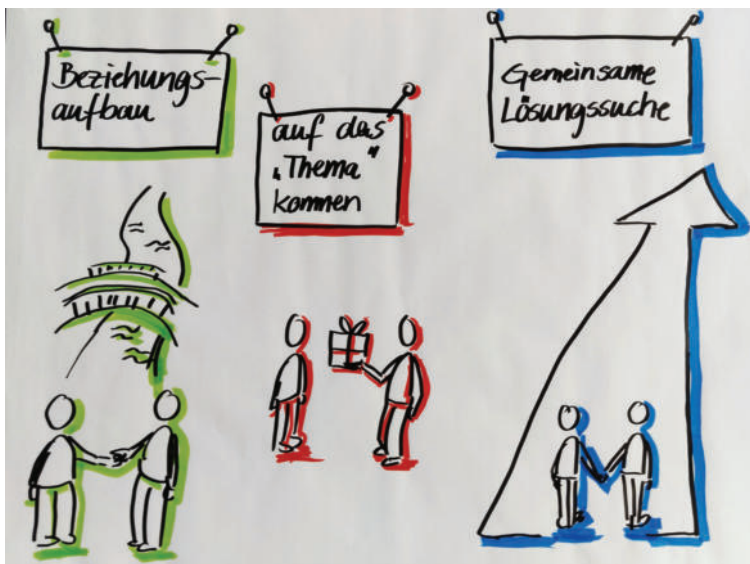 Beziehungs-
aufbau
auf das
„Thema"
kommen
Gemeinsame
Lösungssuche